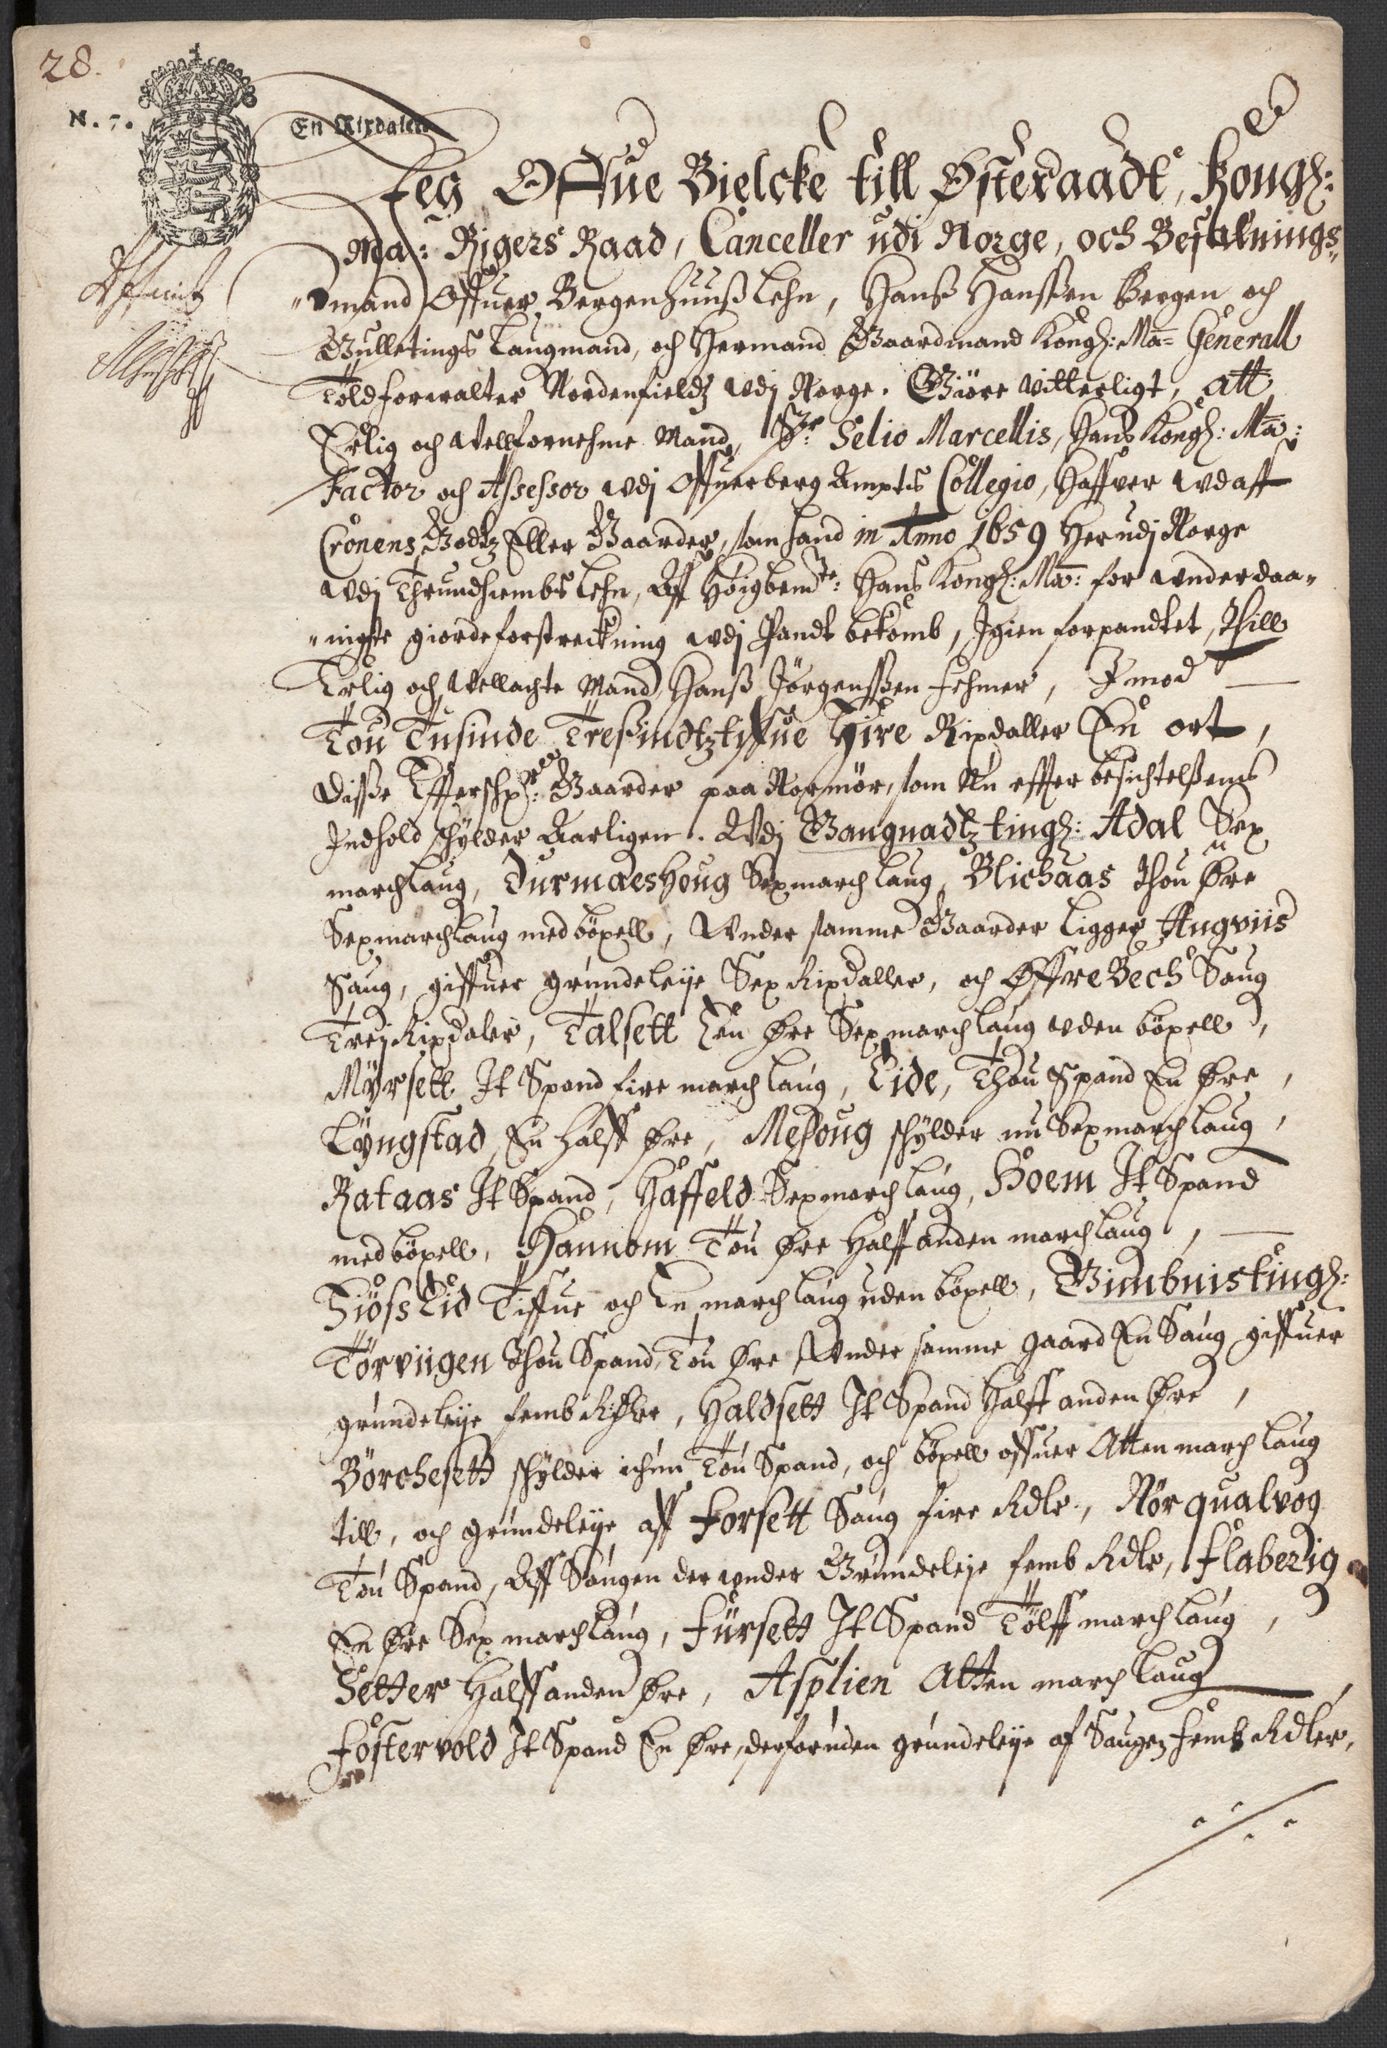 28.
N. 7.
En Rixdaler
Jeg Offue Bielcke till Østeraadt, Kongl:
Ma: Rigers Raad, Canceller udi Norge, och Bestalnings-
mand Offuer Bergenhuuss Lehn, Hanss Hanssen Bergen och
Gulletings Laugmand, och Hermand Gaardmand Kongl: Ma: Generall
Toldforvalter Nordenfields udj Norge. Giøre vitterligt, att
Erlig och Vellfornehme Mand, Sr: Selio Marcellis, Hans Kongl: Ma:
Factor och Assessor udj Offuerberg Amptis Collegio, Haffver udaff
Cronens Godtz Eller Gaarder, som hand in Anno 1659 Her udj Norge
udj Thrundhiembs Lehn, Aff Høigbemte: Hans Kongl: Ma: for underdaa-
nigste giorde forstreckning udj Pandt bekomb, Igien forpandtet, Thill
Erlig och Vellachte Mand, Hanss Jørgenssen Fehmer, Imod
Tou Tusinde Tresindtztyffue Fire Rixdaller En ort,
Disse Effterschr: Gaarder paa Normør, som Nu effter besichtelsens
Indhold schylder Aarligen. Udj Gangnadtz tingl: Adal Sex
marchlaug, Durmaeshoug Sexmarchlaug, Blichaas Thou Øre
Sexmarchlaug med böxell, Under samme Gaarder Ligger Angviis
Saug, giffuer grundeleije Sex Rixdaller, och Øffre Bech Saug
Trej Rixdaler, Talsett Een Øre Sexmarchlaug uden böxell,
Myrsett It Spand fire marchlaug, Eide, Thou Spand En Øre,
Lyngstad En halff Øre, Mehoug schylder nu Sexmarchlaug,
Rataas It Spand, Haffeld Sexmarchlaug, Hoem It Spand
med böxell, Hannem Tou Øre Halffanden marchlaug,
Siøss Eid Tiffue och En marchlaug uden böxell, Gimbnistingl:
Torvigen Thou Spand, Tou Øre Under samme gaard En Saug giffuer
grundeleije femb Rixdlr, Haldsett It Spand Halffanden Øre,
Börchesett schylder ichun Tou Spand, och böxell offuer Atten marchlaug
till, och grundeleije aff Forsett Saug fire Rdlr, Nørqualvog
Tou Spand, Aff Saugen der under Grundeleje femb Rdlr, Flabezig
En Øre Sex marchlaug, Fürsett It Spand Tolff marchlaug,
Setter Halffanden Øre, Asplien Atten marchlaug,
Fostervold It Spand En Øre, derforuden grundeleije af Saugen femb Rdler,